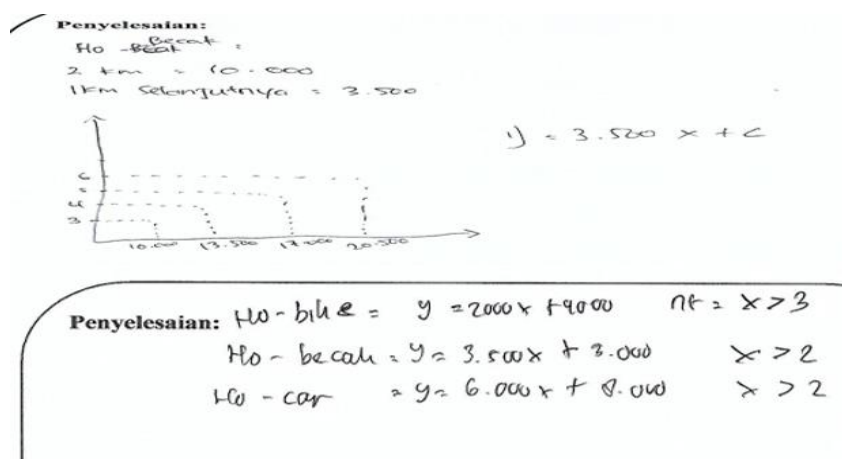 Penyelesaian:
Ho - Becak :
2 km = 10.000
1 km selanjutnya = 3.500
y = 3.500 x + c
6
5
4
3
10.000 13.500 17.000 20.500
Penyelesaian: Ho - bike = y = 2000x + 4000 x > 3
Ho - becak = y = 3.500x + 3.000 x > 2
Ho - car = y = 6.000x + 8.000 x > 2